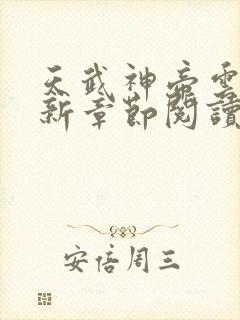 天武神帝雲
新章節閱讀
安倍周三